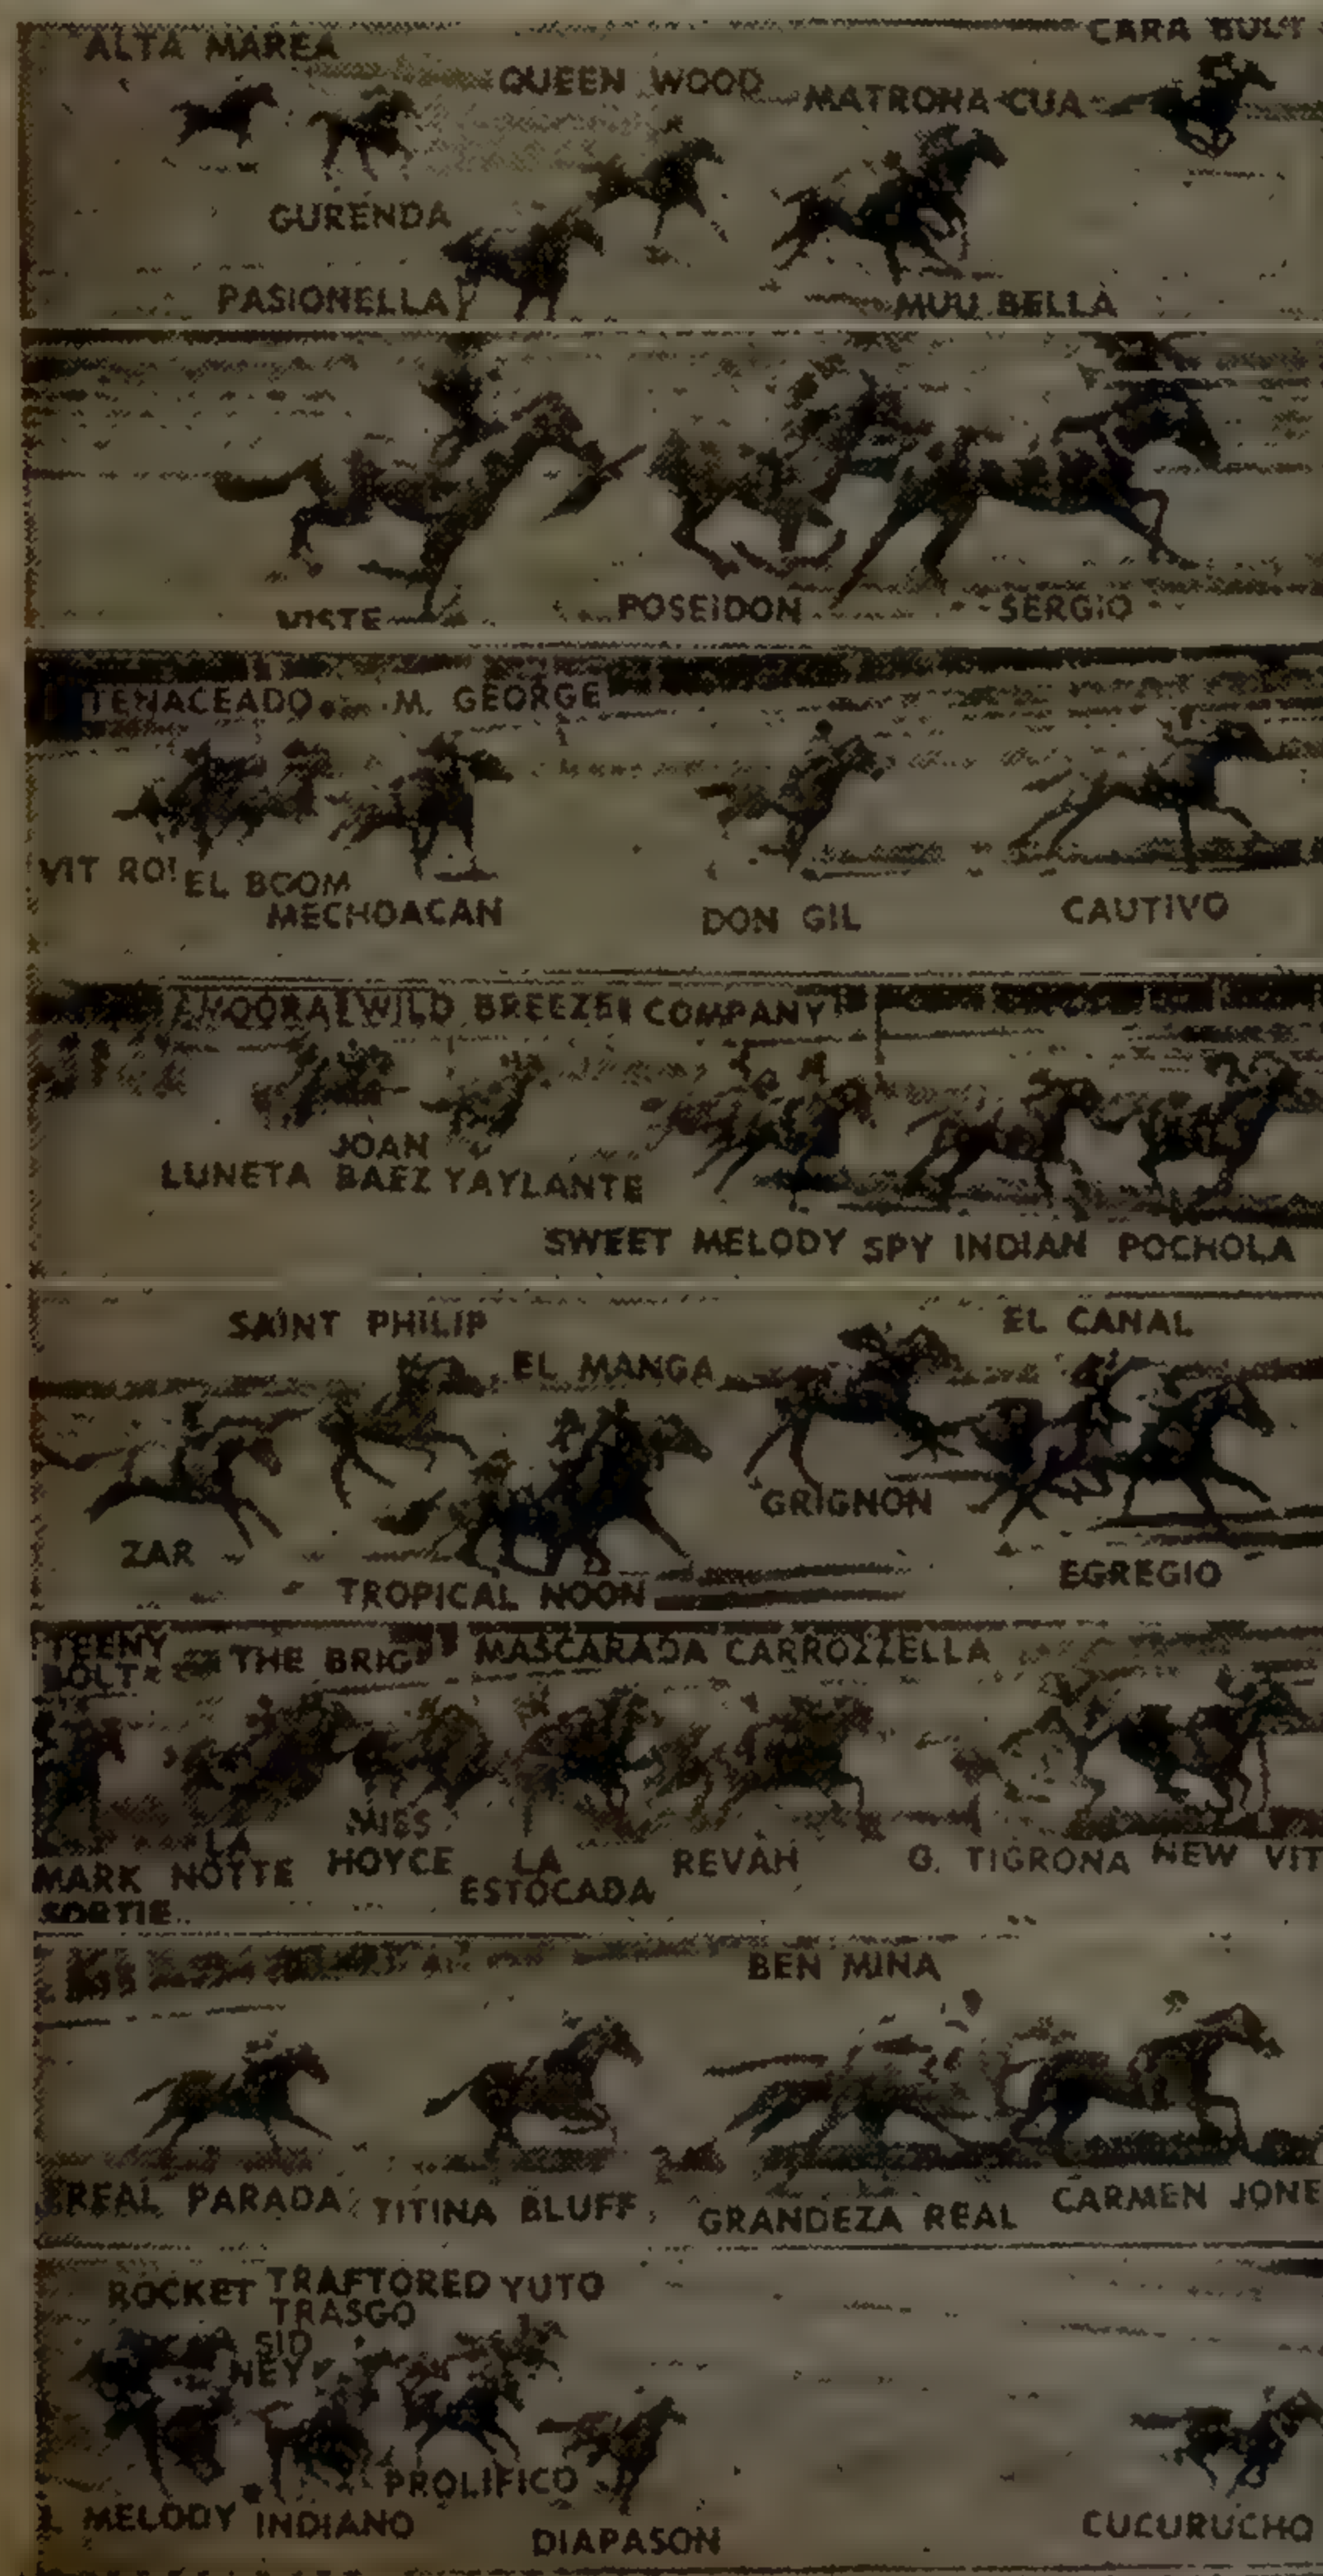 ALTA MAREA
CARA
QUEEN WOOD
MATRONA CUA
GURENDA
PASIONELLA
MUU BELLA
VISTE
POSEIDON
SERGIO
TENACEADO
M. GEORGE
VIT ROI
EL BOOM
MECHOACAN
DON GIL
CAUTIVO
WILD BREEZE
COMPANY
JOAN
LUNETA BAEZ YAYLANTE
SWEET MELODY SPY INDIAN POCHOLA
SAINT PHILIP
EL CANAL
EL MANGA
GRIGNON
ZAR
EGREGIO
TROPICAL NOON
TEENY
BOLT
THE BRIG
MASCARADA CARROZZELLA
MISS
LA
MARK NOTTE
HOYCE
LA
REVAH
G. TIGRONA
NEW VIT
ESTOCADA
SORTIE
BEN MINA
REAL PARADA
TITINA BLUFF
GRANDEZA REAL
CARMEN JONE
ROCKET
TRAFTORED
YUTO
TRASGO
SID
NEY
PROLIFICO
MELODY
INDIANO
DIAPASON
CUCURUCHO